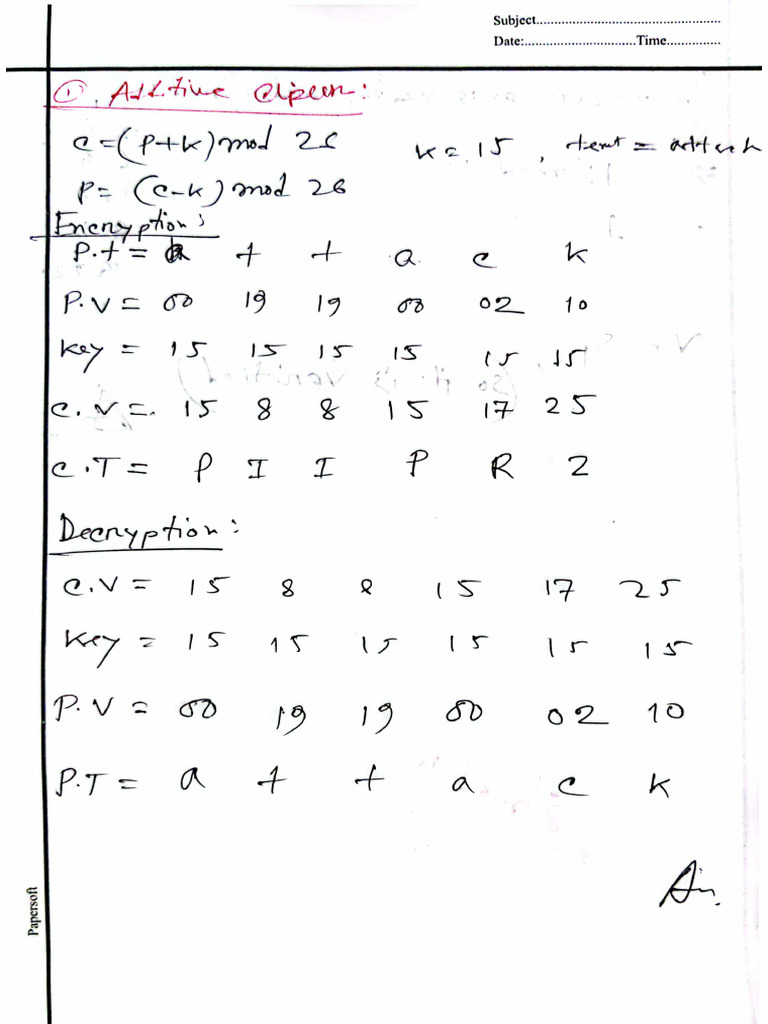 Subject....................................................
Date:................................Time...............
①. Additive Cipher:
c = (P+k) mod 26 k = 15, text = attack
P = (c-k) mod 26
Encryption:
P.t = a t t a c k
P.V = 00 19 19 00 02 10
Key = 15 15 15 15 15 15
C.V = 15 8 8 15 17 25
C.T = P I I P R Z
Decryption:
C.V = 15 8 8 15 17 25
Key = 15 15 15 15 15 15
P.V = 00 19 19 00 02 10
P.T = a t t a c k
Papersoft